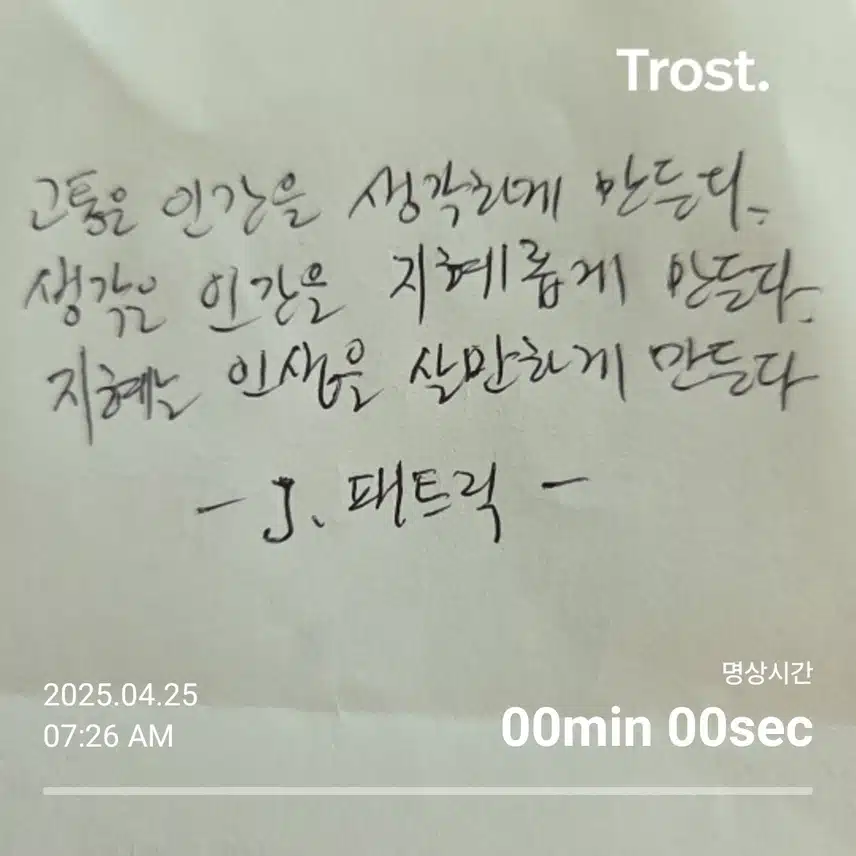 Trost.
고통은 인간을 생각하게 만든다.
생각은 인간을 지혜롭게 만든다.
지혜는 인생을 살만하게 만든다
- J. 패트릭 -
명상시간
2025.04.25
00min 00sec
07:26 AM